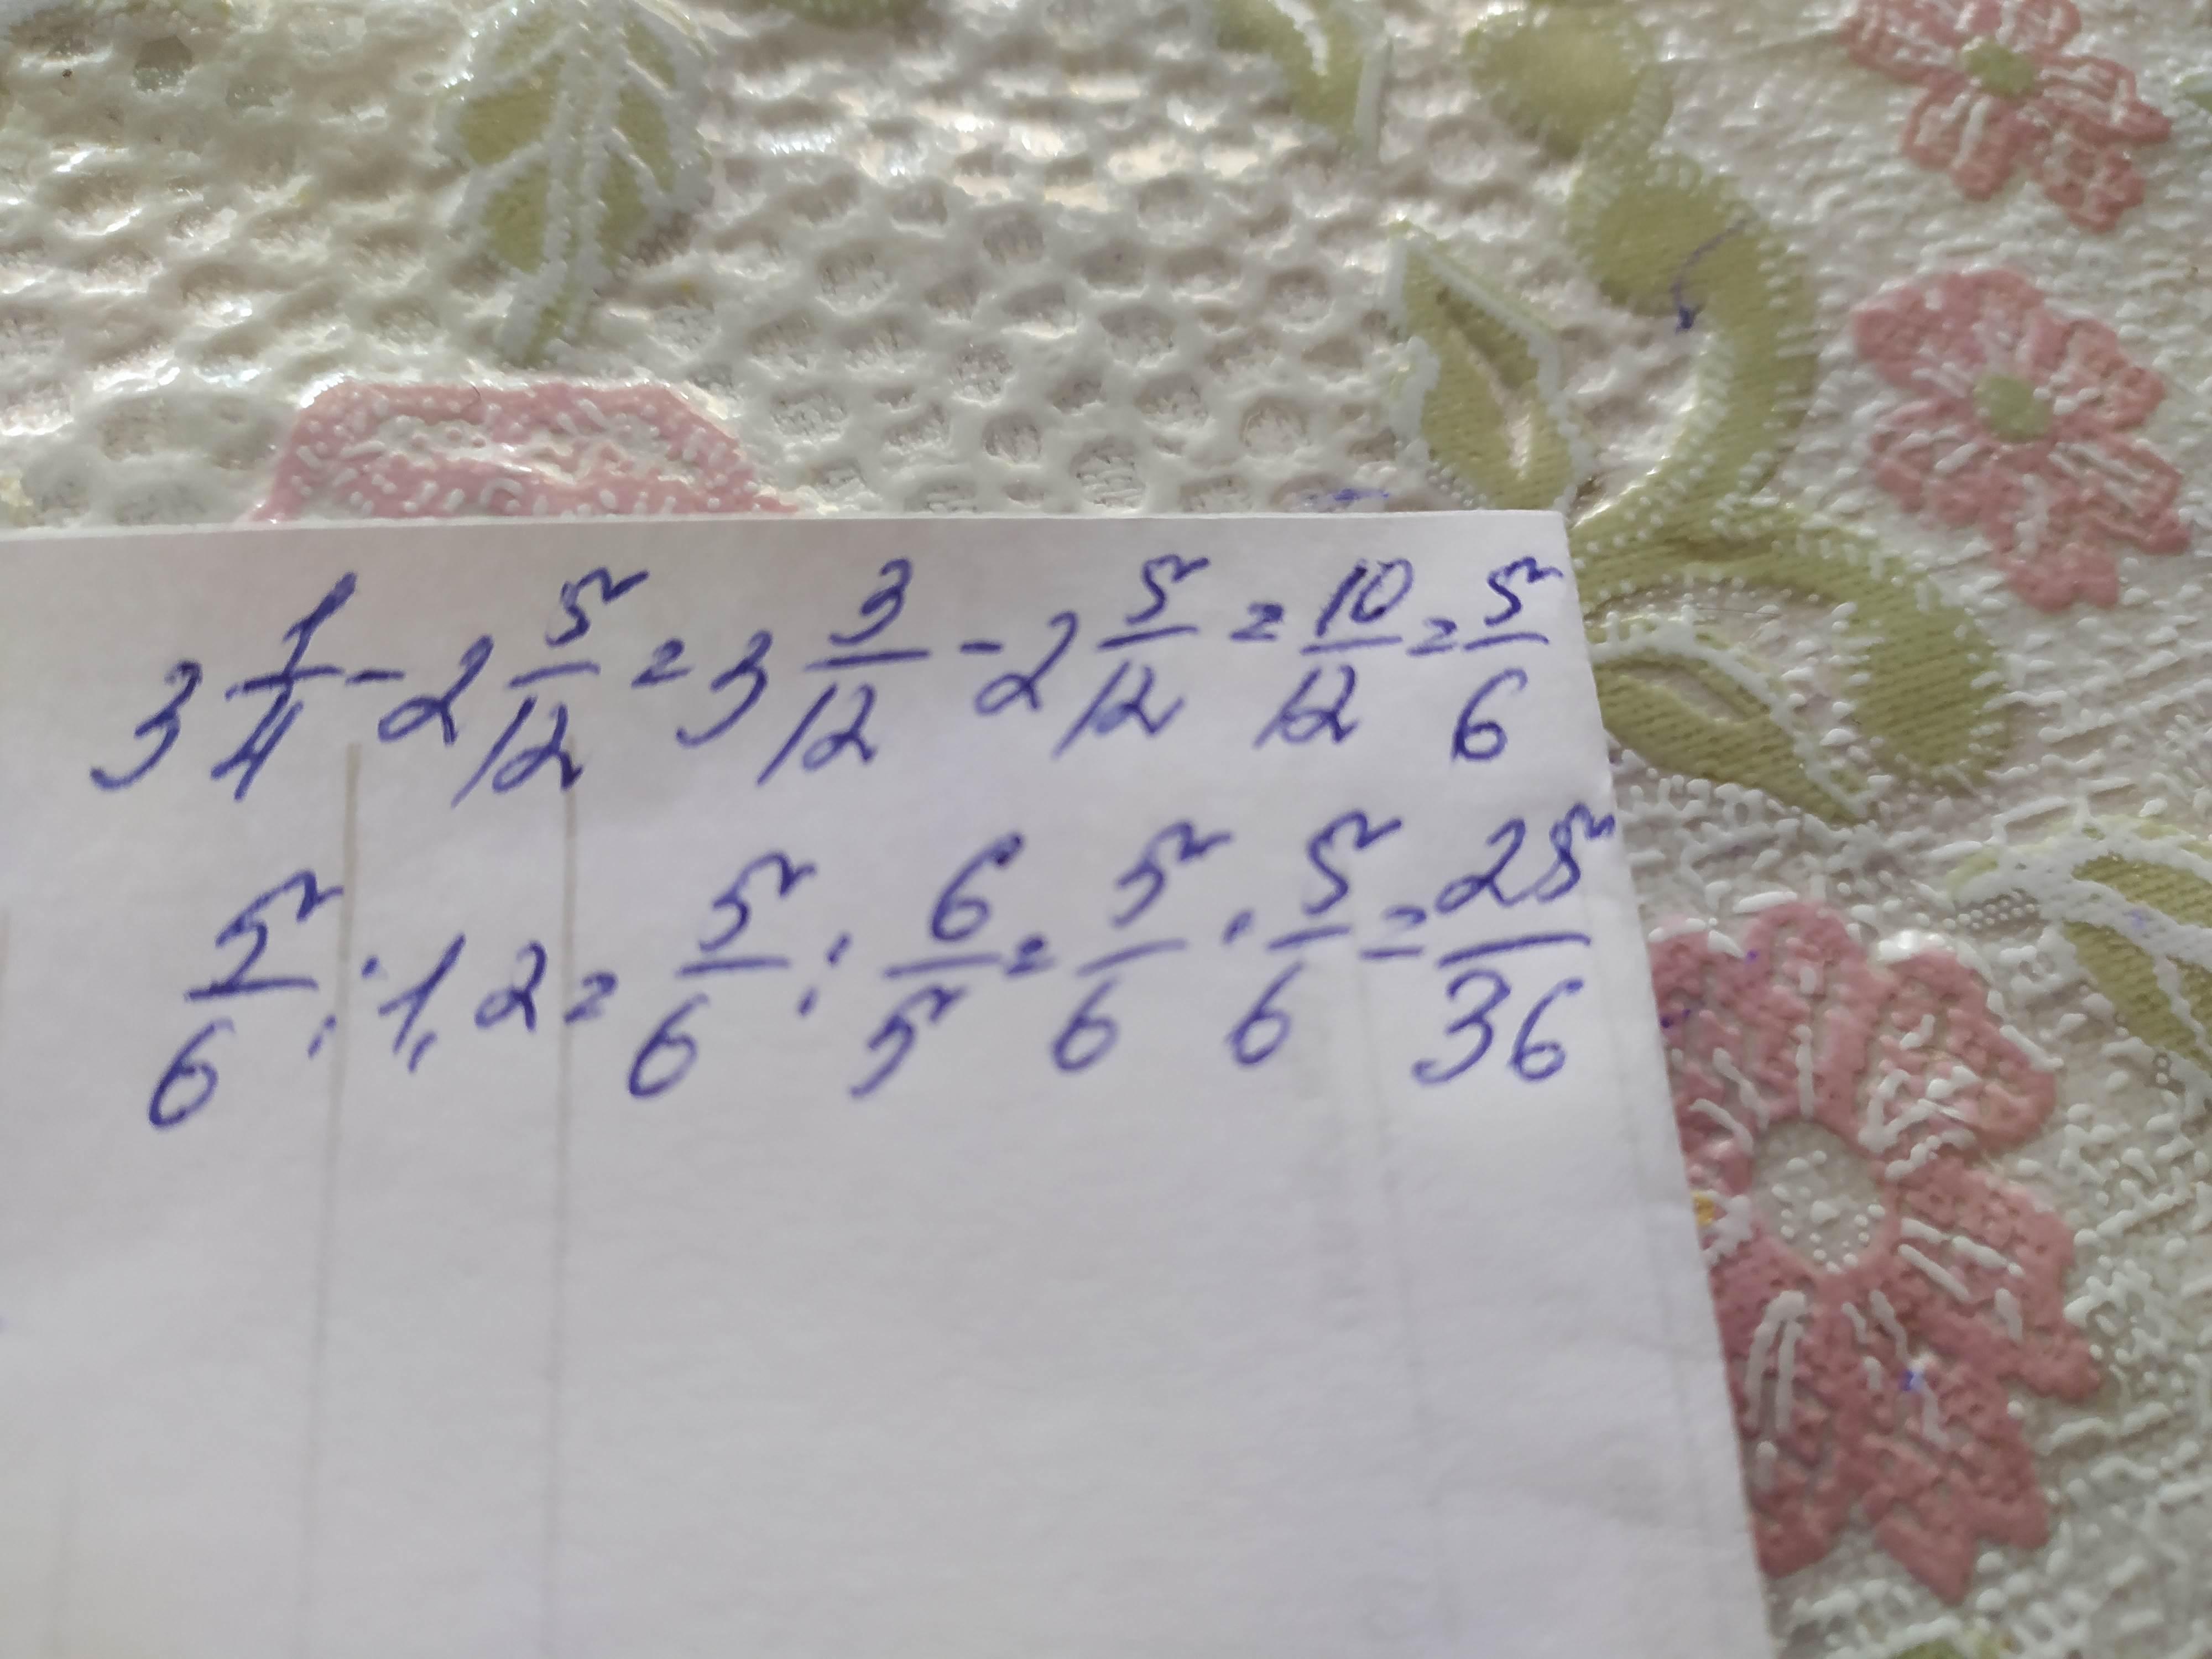 3 1/4 - 2 5/12 = 3 3/12 - 2 5/12 = 10/12 = 5/6
5/6 : 1,2 = 5/6 : 6/5 = 5/6 · 5/6 = 25/36